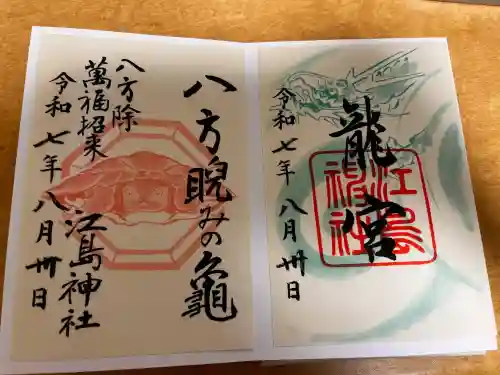 龍宮
江島神社
令和七年八月卅日
八方睨みの亀
八方除
萬福招来
令和七年八月卅日
江島神社